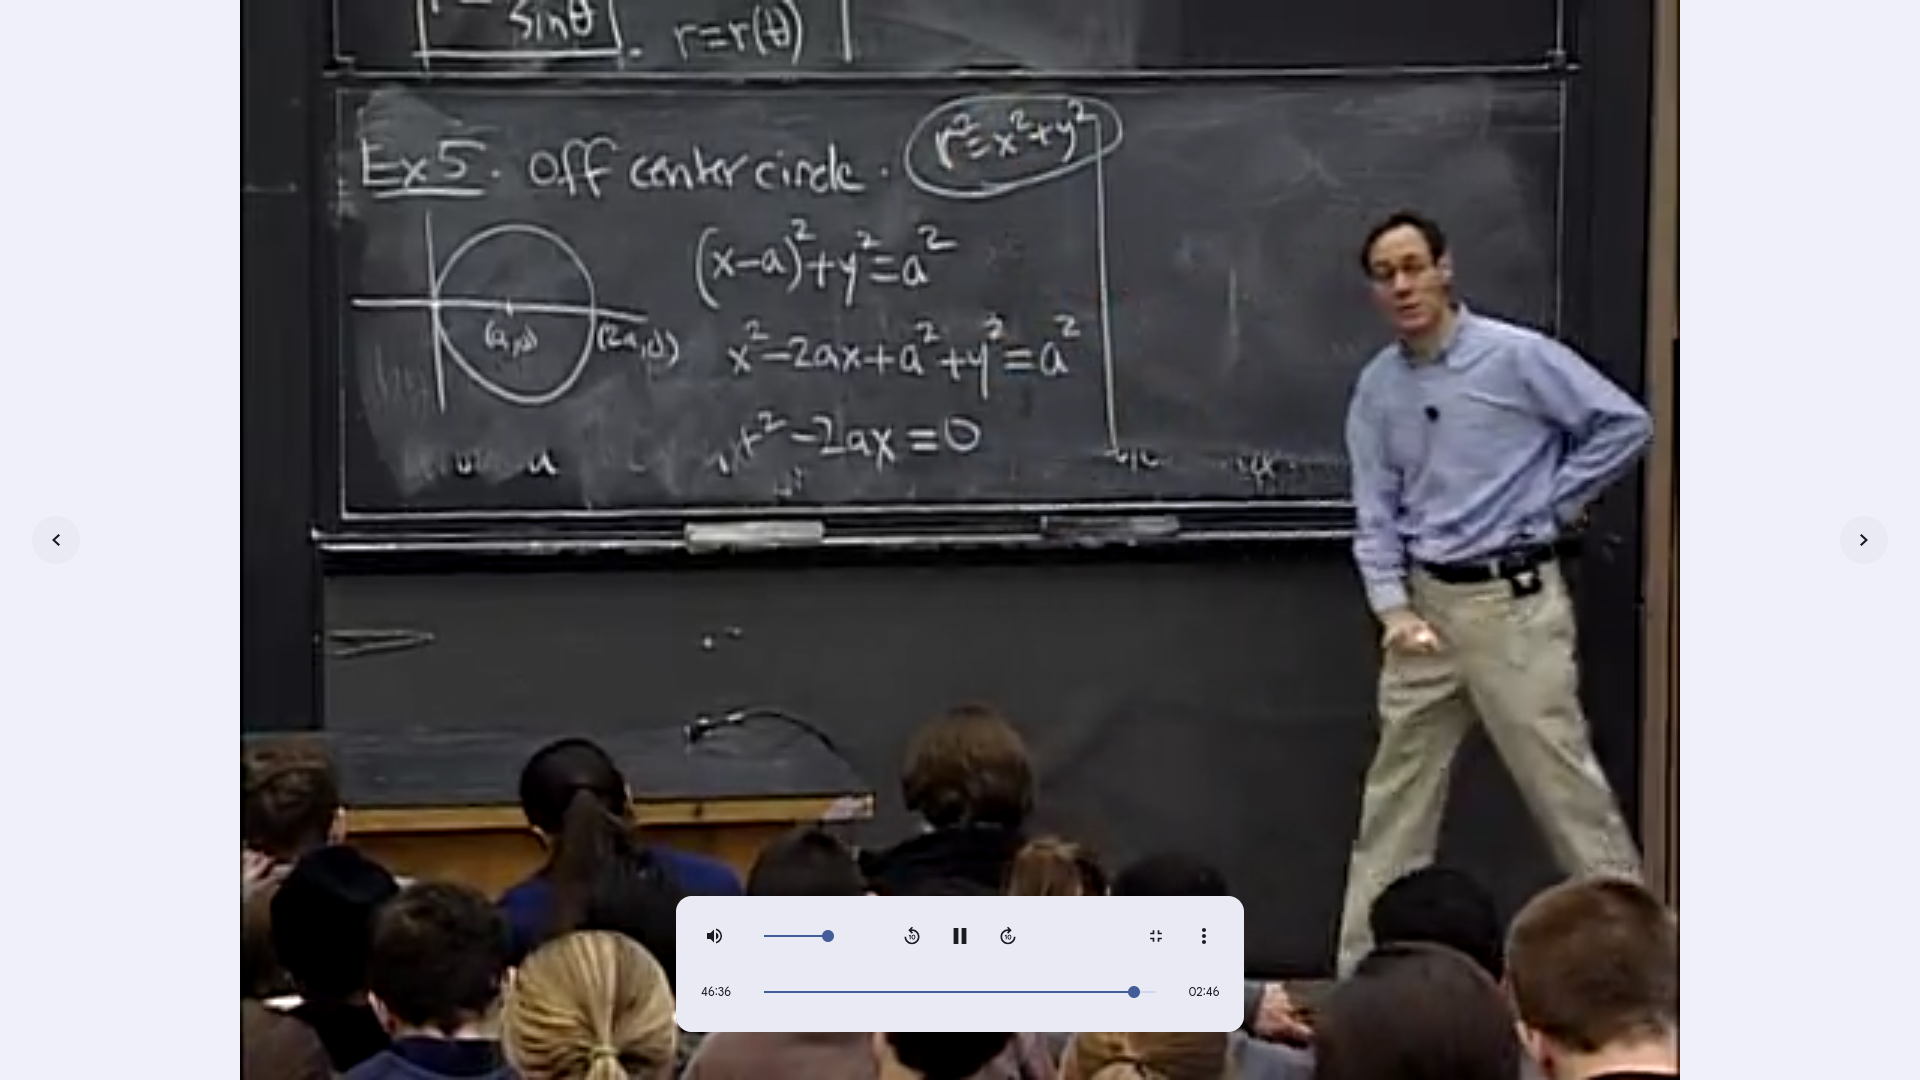 sinθ
r=r(θ)
Ex 5. Off center circle. r²=x²+y²
(x-a)²+y²=a²
(a,0) (2a,0)
x²-2ax+a²+y²=a²
r²-2ax=0
10 10
46:36 02:46